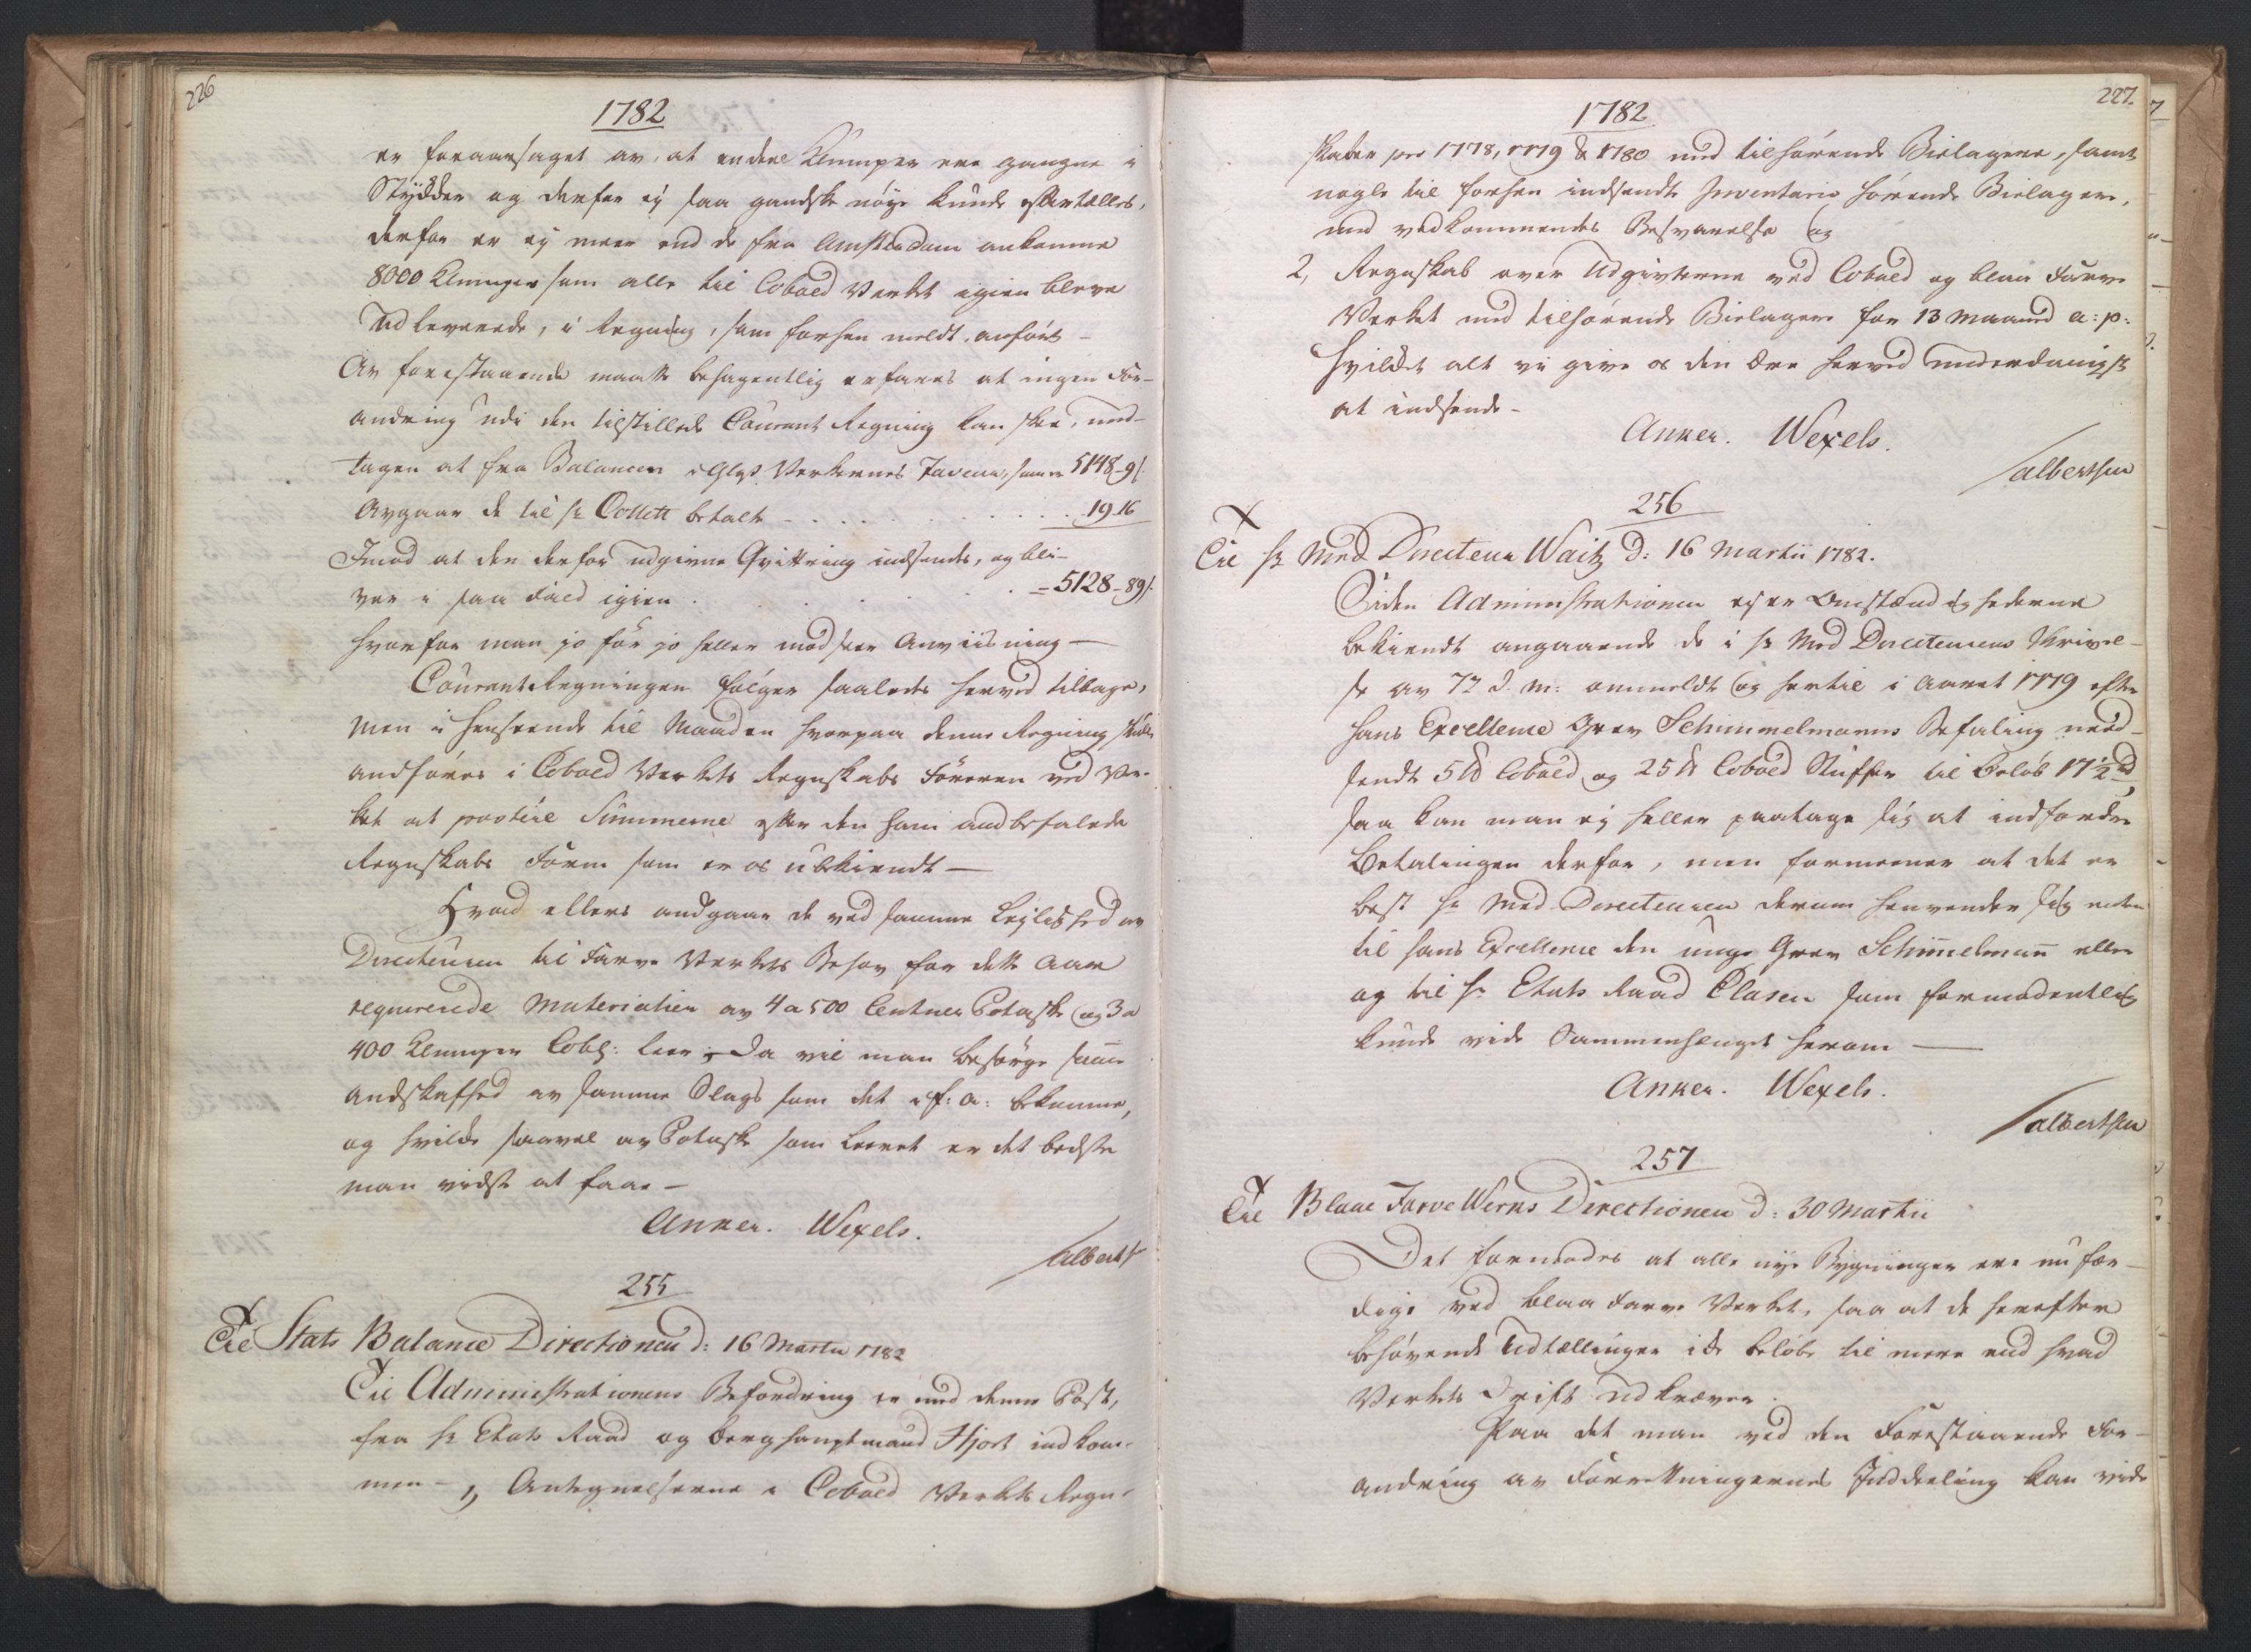 226
1782
er foraarsaget av, at endeel Klumper ere gangne i
Stykker og derfor ej saa gandske nöye kunde eftertælles,
derfor er ej meer end de fra Amsterdam ankomne
8000 Klumper som alle til Cobold Verket igien bleve
udleverede, i Regning, som forhen meldt, anfört –
Av forestaaende maatte behagentlig erfares at ingen For-
andring udi den tilstillede Courant Regning kan skee, und-
tagen at fra Balancen Verkernes som er 5148-9/.
Avgaar de til Hr Collett betalte - . . . . . . . 19.16
Imod at den derfor udgivne Qvittering indsendes, og bli-
ver i saa Fald igien . . . . . . = 5128-89/.
hvorfor man jo för jo heller modseer Anviisning –
Courant Regningen fölger saaledes herved tilbage,
men i Henseende til Maaden hvorpaa denne Regning skulde
andföres i Cobold Verkets Regnskabs Föreren ved Ver-
ket at postere Summerne efter den ham anbefalede
Regnskabs Form som er os ubekiendt –
Hvad ellers andgaar de ved samme Lejlighed av
Directeuren til Farve Verkets Behov for dette Aar
requirerede Materialier av 4 a 500 Centner Potaske og 3 a
400 Klumper Cobl: Leer; Da vil man besörge samme
andskaffed av samme Slags som det i f: a: bekomne,
og hvilke saavel av Potaske som Leeret er det bedste
man vidste at faae –
Anker. Wexels.
/Alberts/
255
Til Stats Balance Directionen d: 16 Martii 1782
Til Administrationens Befordring er med denne Post,
fra Hr Etats Raad og Berghauptmand Hjort indkom-
men – 1, Antegnelserne i Cobold Verkets Regn-
227.
1782
skaber pro 1778, 1779 & 1780 med tilhörende Bielagere, samt
nogle til forhen indsendte Inventarie hörende Bielagere,
med vedkommendes Besvarelse og
2, Regnskab over Udgivterne ved Cobold og blaa Farve
Verket med tilhörende Bielagere for 13 Maaned a: p:
Hvilket alt vi give os den Ære herved underdanigst
at indsende –
Anker. Wexels.
/Albertsen
256
Til Hr Med Directeur Waitz d: 16 Martii 1782.
Siden Administrationen ej er Omstændighederne
bekiendt angaaende de i Hr Med Directeurens Skrivel-
se av 72 d. m: anmeldte og hertil i Aaret 1779 efter
hans Excellence Grev Schimmelmanns Befaling ned-
sendte 5 ℔ Cobold og 25 ℔ Cobold Stuffer til Belöb 17½ rd,
saa kan man ej heller paatage sig at indfordre
Betalingen derfor, men formeener at det er
best Hr Med Directeuren derom henvender sig enten
til hans Excellence den unge Grev Schim̄elman̄ eller
og til Hr Etats Raad Classen som formodentlig
kunde vide Sammenhænget herom –
Anker. Wexels.
/Albertsen
257
Til Blaae Farve Werks Directionen d: 30 Martii
Det formodes at alle nye Bygninger ere nu fær-
dige ved blaa Farve Verket, saa at de herefter
behövende Udtællinger ikke belöbe til mere end hvad
Verkets Drift udkræver.
Paa det man ved den Forestaaende For-
andring av Forretningernes Inddeeling kan vide